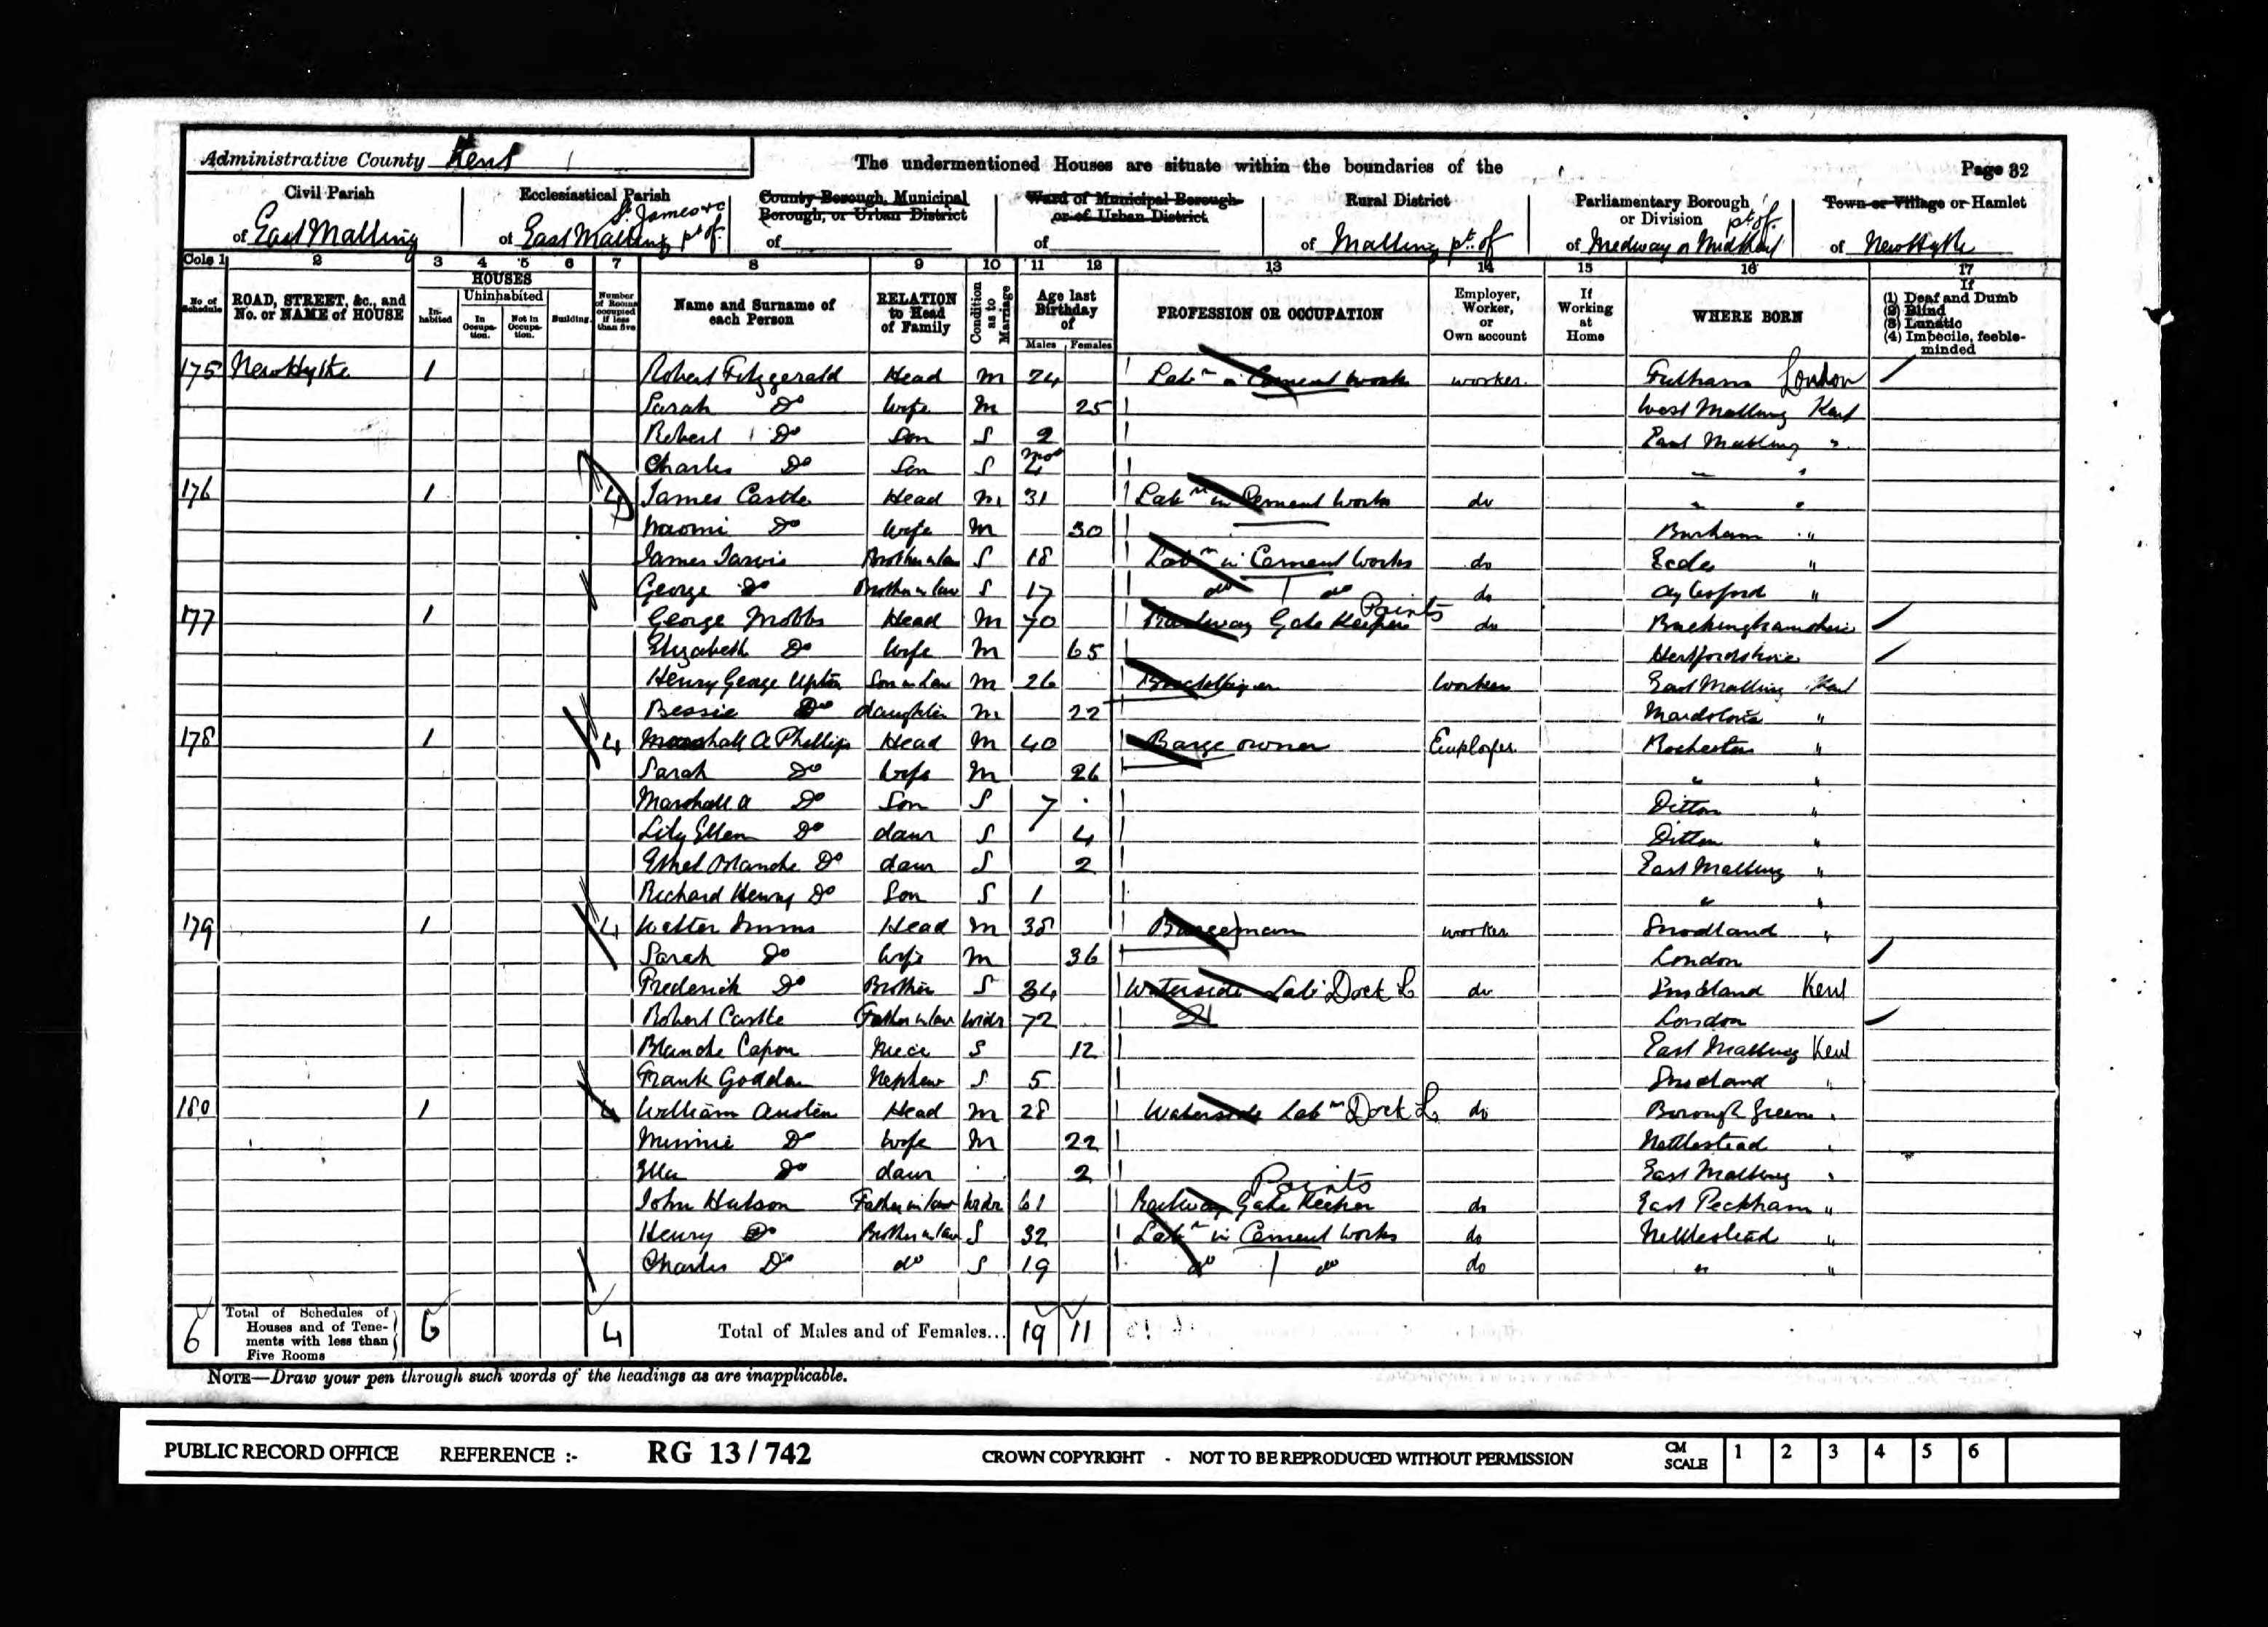 Administrative County Kent
The undermentioned Houses are situate within the boundaries of the
Page 32
Civil Parish
of East Malling
Ecclesiastical Parish
St. James &c
of East Malling pt of
County Borough, Municipal
Borough, or Urban District
of
Ward of Municipal Borough
or of Urban District
of
Rural District
of Malling pt. of
Parliamentary Borough
or Division pt of
of Medway or Mid Kent
Town or Village or Hamlet
of New Hythe
Cols 1 2 3 4 5 6 7 8 9 10 11 12 13 14 15 16 17
No of Schedule
ROAD, STREET, &c., and No. or NAME of HOUSE
HOUSES
Inhabited
Uninhabited
In Occupation.
Not in Occupation.
Building.
Number of Rooms occupied if less than five
Name and Surname of each Person
RELATION to Head of Family
Condition as to Marriage
Age last Birthday of
Males Females
PROFESSION OR OCCUPATION
Employer, Worker, or Own account
If Working at Home
WHERE BORN
If
(1) Deaf and Dumb
(2) Blind
(3) Lunatic
(4) Imbecile, feeble-minded
175 New Hythe 1 Robert Fitzgerald Head M 24 Labr in Cement Work worker Fulham London
Sarah Do Wife M 25 West Malling Kent
Robert Do Son S 2 East Malling "
Charles Do Son S 4 mos " "
176 1 4 James Castle Head M 31 Labr in Cement Works do " "
Naomi Do Wife M 30 Burham "
James Jarvis Brother in law S 18 Labr in Cement Works do Eccles "
George Do Brother in law S 17 do do do Aylesford "
177 1 George Mobbs Head M 70 Railway Gate Keeper Points do Buckinghamshire
Elizabeth Do Wife M 65 Hertfordshire
Henry George Upton Son in Law M 26 Bricklayer Worker East Malling Kent
Bessie Do daughter M 22 Maidstone "
178 1 4 Marshall A Phillips Head M 40 Barge owner Employer Rochester "
Sarah Do Wife M 26 " "
Marshall A Do Son S 7 Ditton "
Lily Ellen Do daur S 4 Ditton "
Ethel Blanche Do daur S 2 East Malling "
Richard Henry Do Son S 1 " "
179 1 4 Walter Imms Head M 38 Bargeman worker Snodland "
Sarah Do Wife M 36 London
Frederick Do Brother S 34 Waterside Labr Dock L do Snodland Kent
Robert Castle Father in law Widr 72 London
Blanche Capon Niece S 12 East Malling Kent
Frank Godden Nephew S 5 Snodland "
180 1 4 William Austen Head M 28 Waterside Labr Dock L. do Borough Green "
Minnie Do Wife M 22 Nettlestead "
Ella Do daur 2 East Malling "
John Hutson Father in law Widr 61 Railway Gate Keeper Points do East Peckham "
Henry Do Brother in law S 32 Labr in Cement Works do Nettlestead "
Charles Do do S 19 do do do " "
6 Total of Schedules of Houses and of Tenements with less than Five Rooms 6 4 Total of Males and of Females... 19 11
NOTE—Draw your pen through such words of the headings as are inapplicable.
PUBLIC RECORD OFFICE REFERENCE :- RG 13/742 CROWN COPYRIGHT - NOT TO BE REPRODUCED WITHOUT PERMISSION CM SCALE 1 2 3 4 5 6